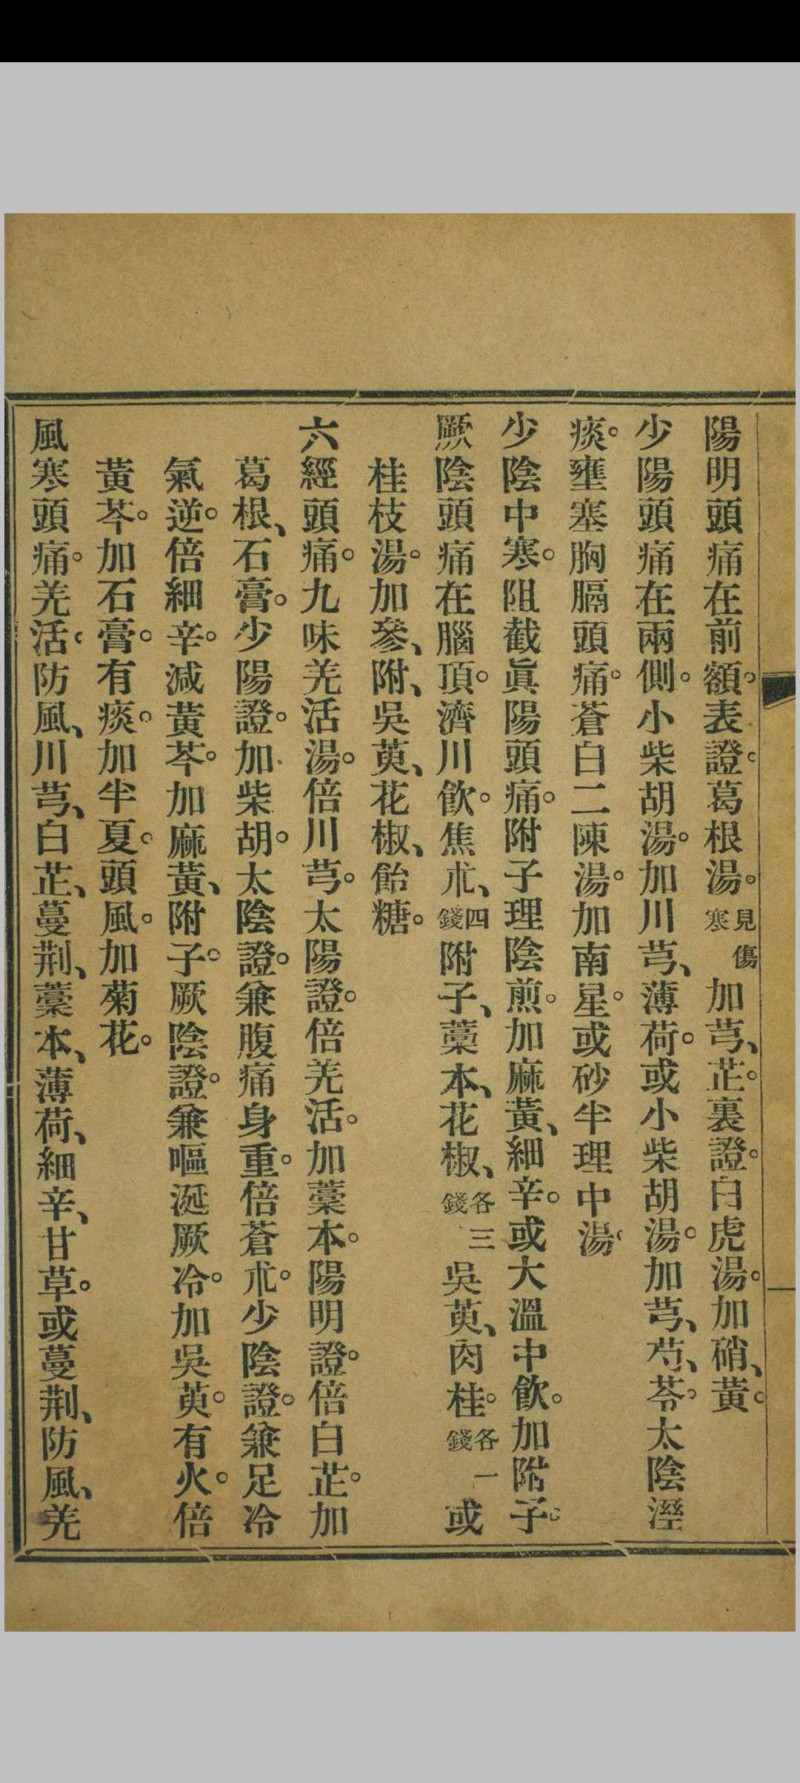 陽明頭痛在前額。表證。葛根湯。見傷寒加芎、芷。裏證。白虎湯。加硝、黃。
少陽頭痛在兩側。小柴胡湯。加川芎、薄荷。或小柴胡湯。加芎、芍、苓。太陰溼
痰。壅塞胸膈頭痛。蒼白二陳湯。加南星。或砂半理中湯。
少陰中寒。阻截眞陽頭痛。附子理陰煎。加麻黃、細辛。或大溫中飲。加附子。
厥陰頭痛在腦頂。濟川飲。焦朮、四錢附子、藁本、花椒、各三錢吳萸、肉桂。各一錢或
桂枝湯。加參、附、吳萸、花椒、飴糖。
六經頭痛。九味羌活湯。倍川芎。太陽證。倍羌活。加藁本。陽明證。倍白芷。加
葛根、石膏。少陽證。加柴胡。太陰證。兼腹痛身重。倍蒼朮。少陰證。兼足冷
氣逆。倍細辛。減黃芩。加麻黃、附子。厥陰證。兼嘔涎厥冷。加吳萸。有火。倍
黃芩。加石膏。有痰。加半夏。頭風。加菊花。
風寒頭痛。羌活。防風、川芎、白芷、蔓荆、藁本、薄荷、細辛、甘草。或蔓荆、防風、羌